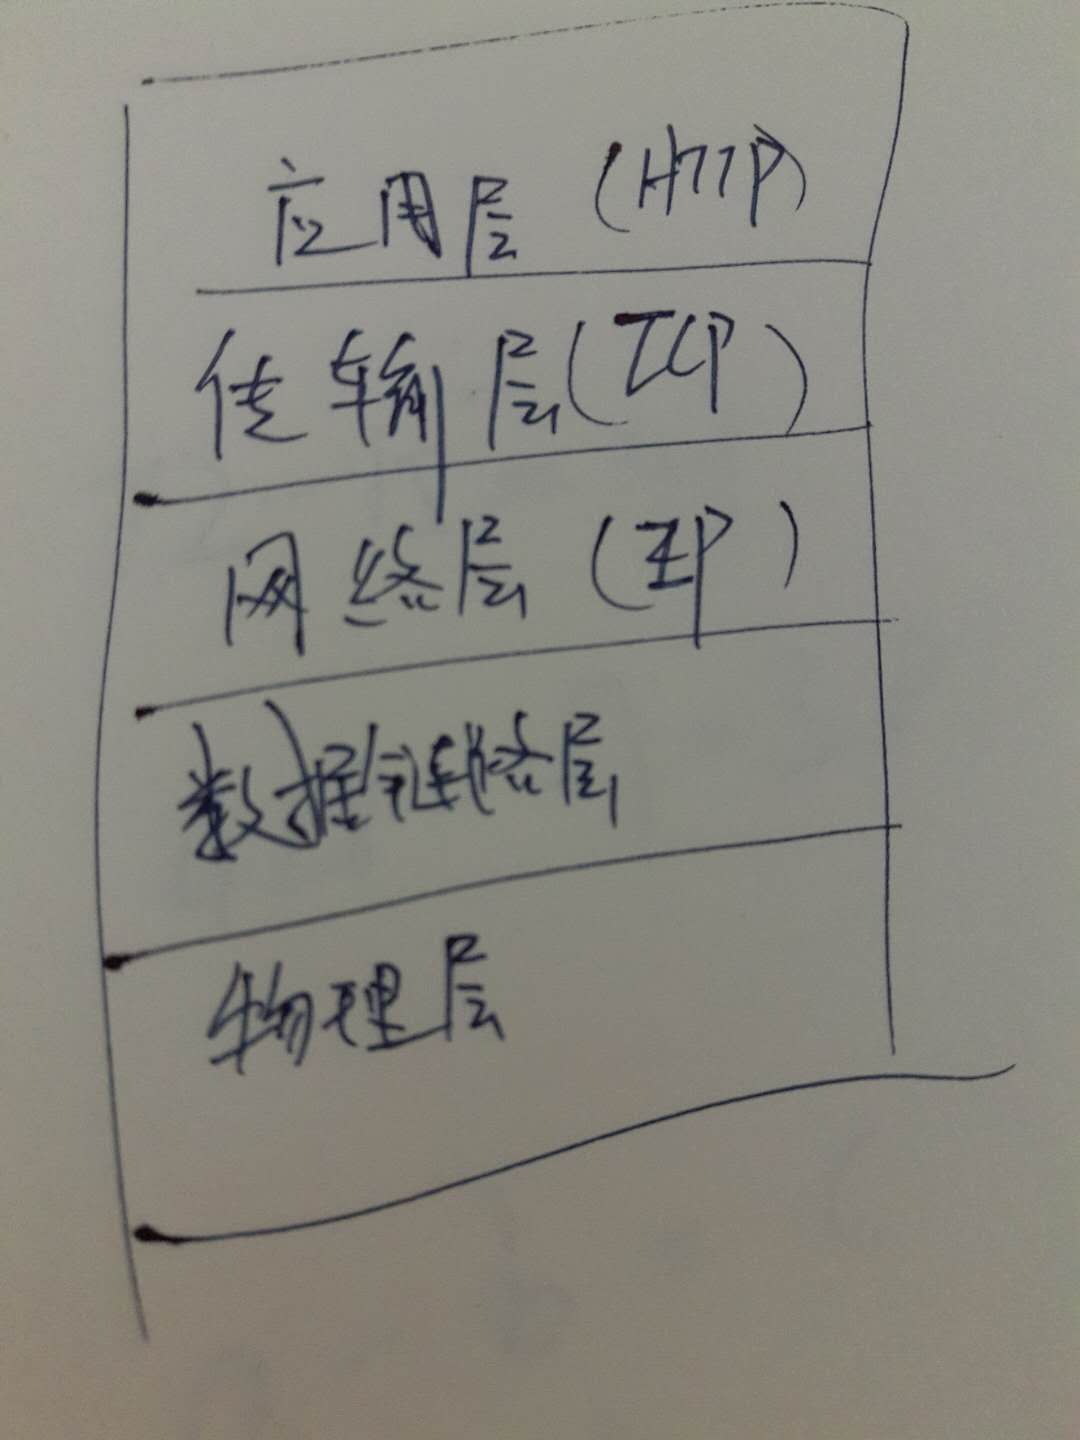 应用层 (HTTP)
传输层 (TCP)
网络层 (IP)
数据链路层
物理层